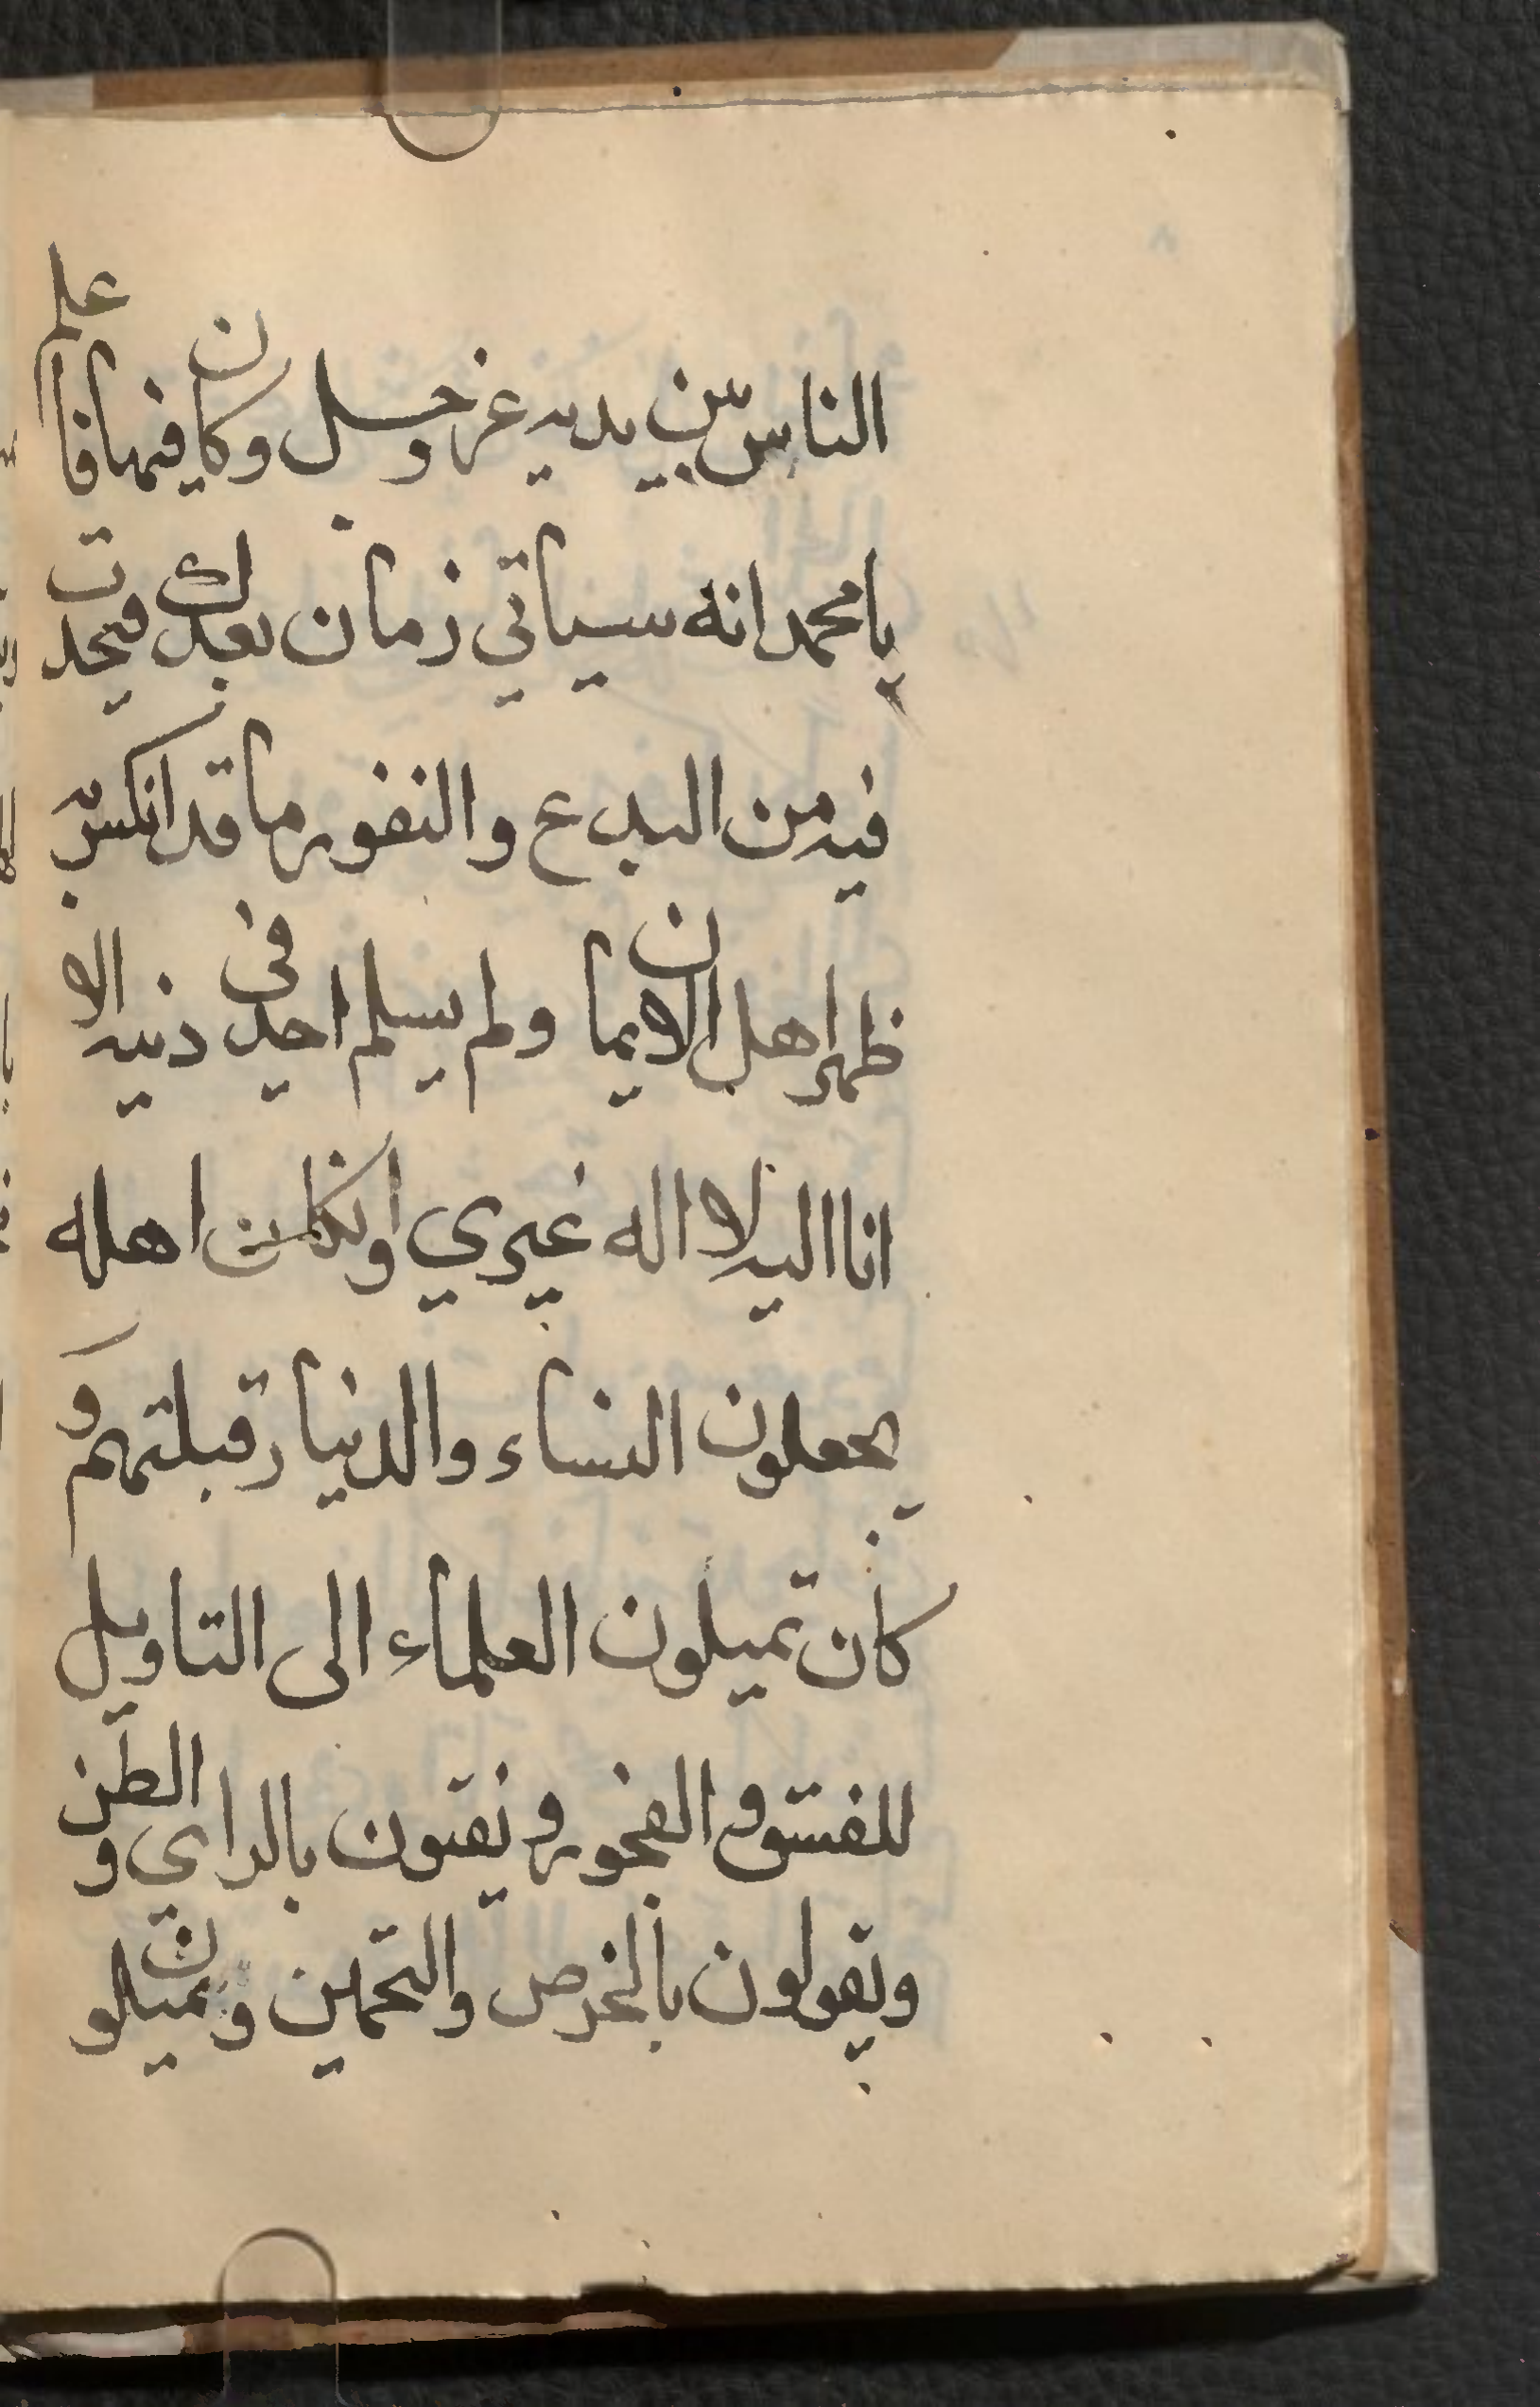 الناس بين يديه عز وجل وكان فيها فاعلم
يا محمد انه سياتي زمان بعدك فيحدت
فيه من البدع والنفور ما قد انكسر به
ظهر اهل الايمان ولم يسلم احد في دنيه الا
انا اليه لا اله غيري او نكا من اهله
يجعلون النساء والدنيا رقبلتهم و
كان تميلون العلماء الى التاويل
للفسق و الفجور و نفتون بالراي و الظن
ويقولون بالخرص والتخمين و يميلون